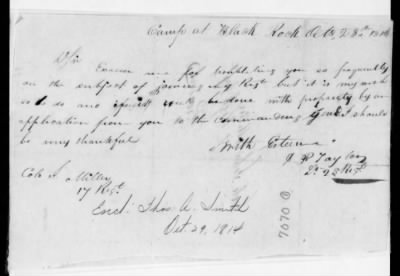 Camp at Black Rock Octr. 28th 1814
D/Sir Excuse me for troubling you so frequently
on the subject of joining my Regt. but it is my wish
so to do and if it could be done with propriety by an
application from you to the commanding Genl I should
be very thankful
With Esteem
Taylor
2d 23 Regt.
Colo J. Miller
17 Regt.
Encl: Thos. A. Smith
Oct. 29, 1814
7070